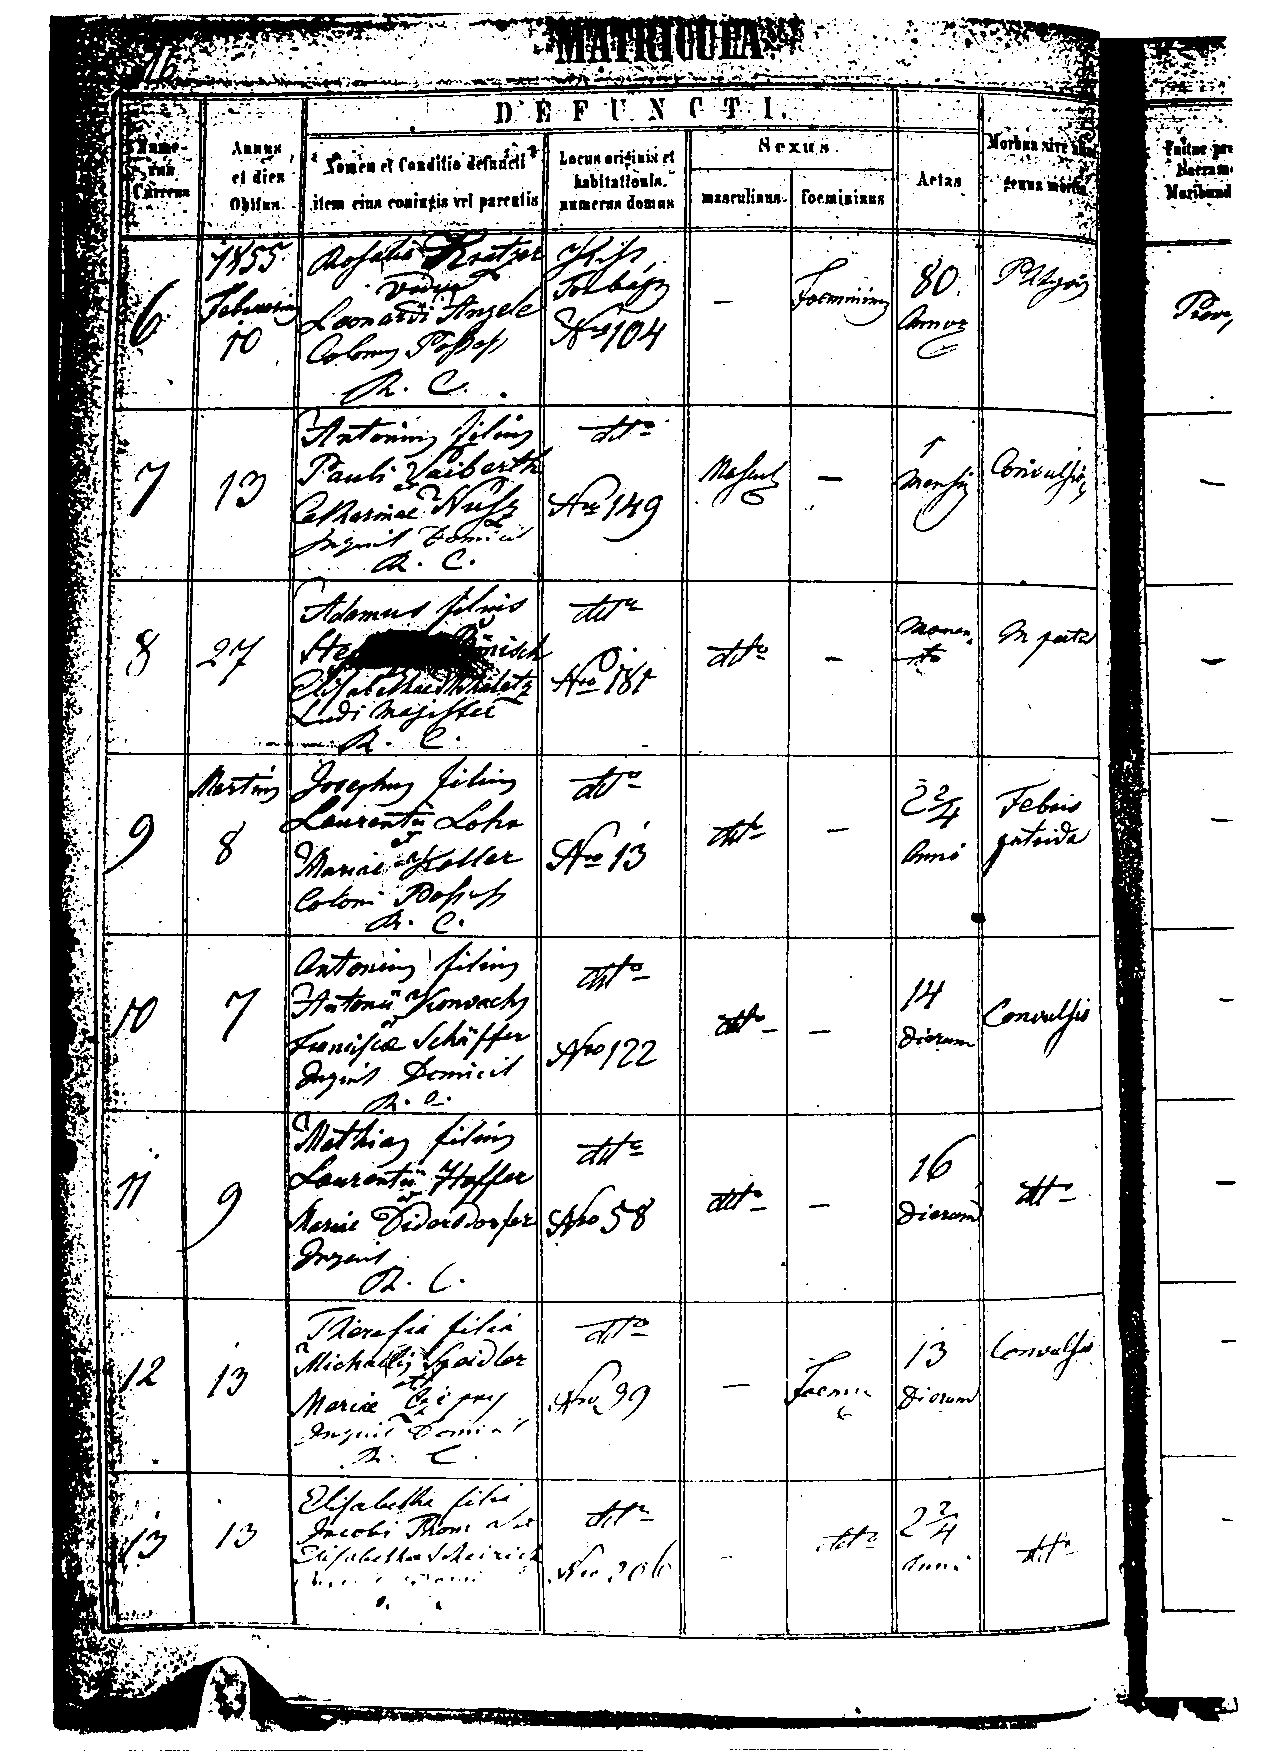 16
MATRICULA
DEFUNCTI.
Nume-
rus
Currens
Annus
et dies
Obitus.
Nomen et Conditio defuncti
item eius coniugis vel parentis
Locus originis et
habitationis.
numerus domus
Sexus.
masculinus.
foeminins
Aetas
Morbus sive
genus mortis
6
1855
Februarius
10
Rosalia Kratzer
vidua
Leonardi Angele
Colonus Possess
R. C.
Kiss
Torbágy
Nro 104
—
Foemininus
80
Annor
7
13
Antonius filius
Pauli Leiberth
et
Catharinae Nusz
Inquil Domicil
R. C.
ditto
Nro 149
Mascul
—
1
Mensis
Convulsio
8
27
Adamus filius
Elisabethae
Ludi Magister
R. C.
ditto
Nro 181
ditto
—
Momen.
to
In partu
9
Martius
8
Josephus filius
Laurentii Lohr
et
Mariae Koller
Coloni Possess
R. C.
ditto
Nro 13
ditto
—
2 3/4
Anni
Febris
putrida
10
7
Antonius filius
Antonii Kovach
et
Franciscae Schäffer
Inquil Domicil
R. C.
ditto
Nro 122
ditto
—
14
Dierum
Convulsio
11
9
Mathias filius
Laurentii Haffer
et
Mariae Didersdorfer
Inquil
R. C.
ditto
Nro 58
ditto
—
16
Dierum
ditto
12
13
Theresia filia
Michaelis Speidler
et
Mariae
Inquil Domicil
R. C.
ditto
Nro 39
—
Foemi
13
Dierum
Convulsio
13
13
Elisabetha filia
Jacobi Thom
Elisabethae
ditto
Nro 206
—
ditto
2 3/4
Anni
ditto